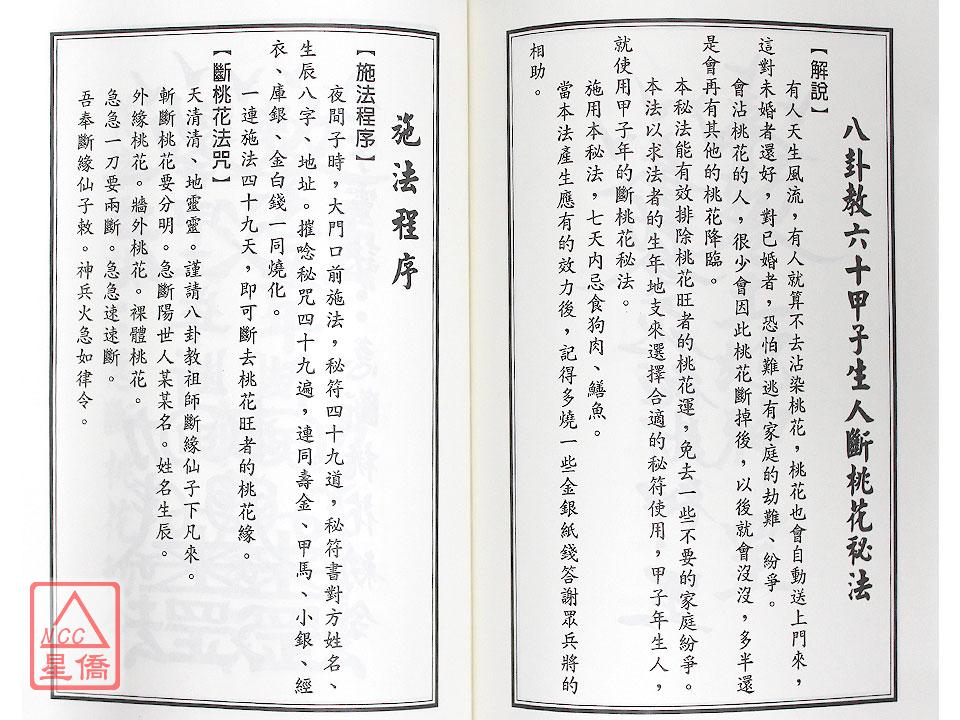 八卦教六十甲子生人斷桃花秘法
【解說】
有人天生風流，有人就算不去沾染桃花，桃花也會自動送上門來，
這對未婚者還好，對已婚者，恐怕難逃有家庭的劫難、紛爭。
會沾桃花的人，很少會因此桃花斷掉後，以後就會沒沒，多半還
是會再有其他的桃花降臨。
本秘法能有效排除桃花旺者的桃花運，免去一些不要的家庭紛爭。
本法以求法者的生年地支來選擇合適的秘符使用，甲子年生人，
就使用甲子年的斷桃花秘法。
施用本秘法，七天內忌食狗肉、鱔魚。
當本法產生應有的效力後，記得多燒一些金銀紙錢答謝眾兵將的
相助。
施法程序
【施法程序】
夜間子時，大門口前施法，秘符四十九道，秘符書對方姓名、
生辰八字、地址。摧唸秘咒四十九遍，連同壽金、甲馬、小銀、經
衣、庫銀、金白錢一同燒化。
一連施法四十九天，即可斷去桃花旺者的桃花緣。
【斷桃花法咒】
天清清、地靈靈。謹請八卦教祖師斷緣仙子下凡來。
斬斷桃花要分明。急斷陽世人某某名。姓名生辰。
外緣桃花。牆外桃花。裸體桃花。
急急一刀要兩斷。急急速速斷。
吾奉斷緣仙子敕。神兵火急如律令。
NCC
星僑